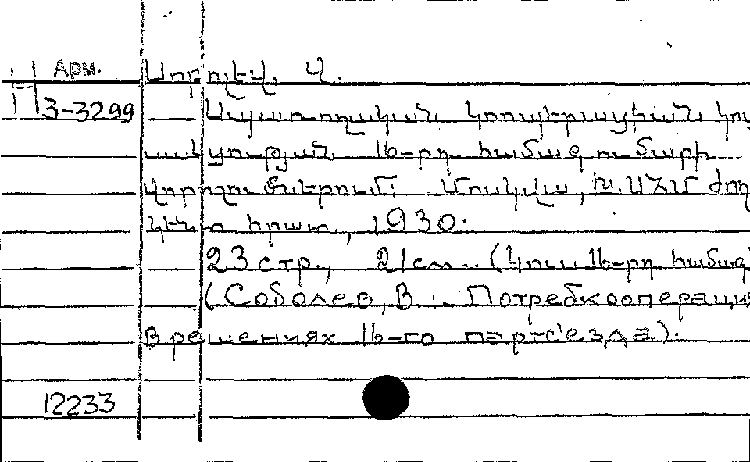 Арм. Սոբոլեվ, Վ.
3-3299 Սպառողական կոոպերացիան կու
սակցության 16-րդ համագումարի
վորոշումներում: Մոսկվա, ԽՍՀՄ ժող
կենտ հրատ, 1930:
23 стр., 21 см. (Կուս 16-րդ համագ
(Соболев, В. Потребкооперация
в решениях 16-го партс'езда).
12233